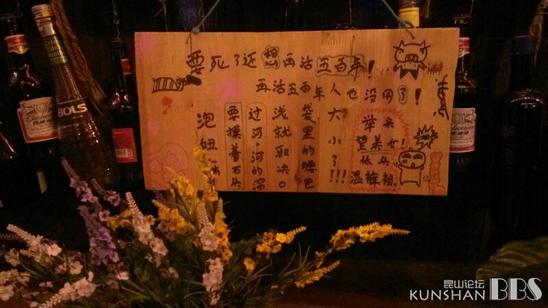 要死了还想再活五百年!
再活五百年人也没用了!
泡妞
要摸着石头
过河,河的深
浅就取决。
袋里的腰包
大小了!!!
举头
望美女!
低头
BOLS
昆山论坛
KUNSHAN BBS